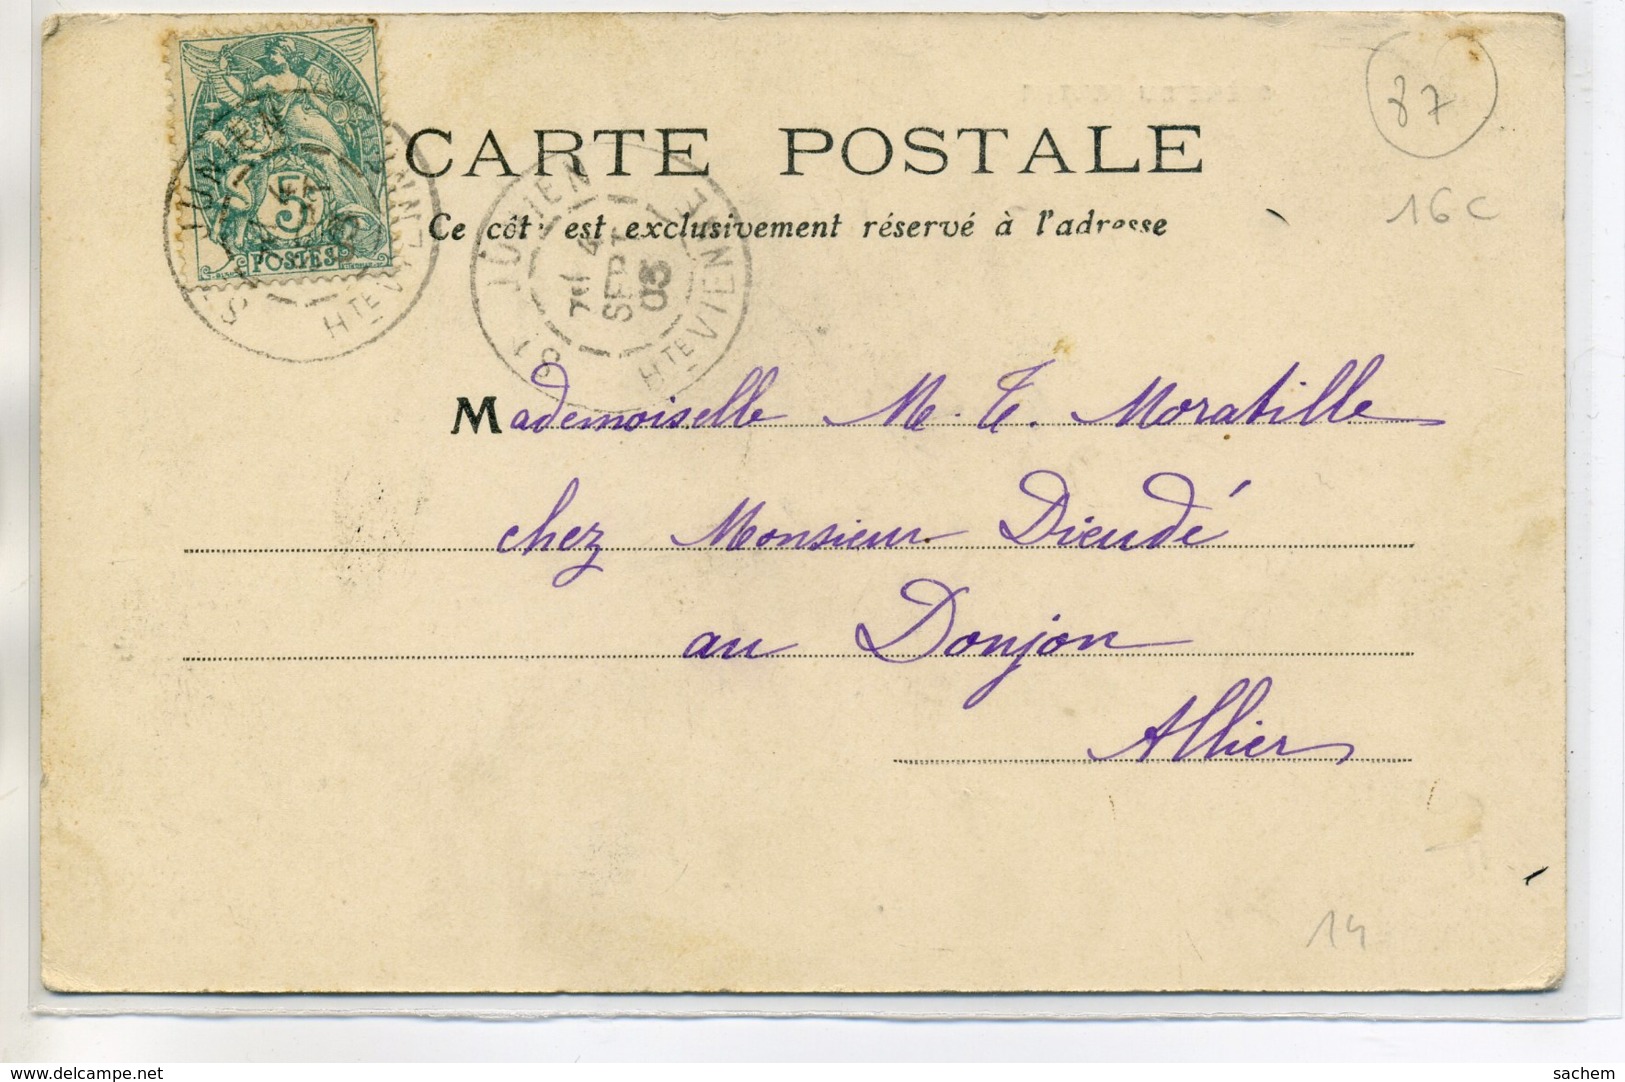 87
CARTE POSTALE
16 C
Ce côt est exclusivement réservé à l'adresse
5
POSTES
ST JUNIEN
7E 4
SEPT
03
HTE VIENNE
Mademoiselle M. T. Moratille
chez Monsieur Dieudé
au Donjon
Allier
14
www.delcampe.net
sachem